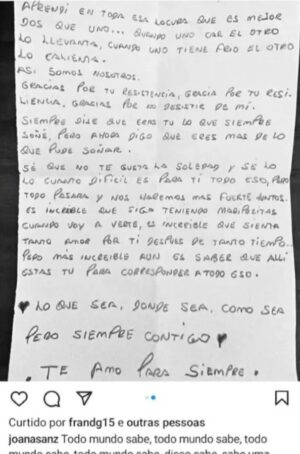 APRENDI EN TODA ESA LOCURA QUE ES MEJOR
DOS QUE UNO... CUANDO UNO CAE EL OTRO
LO LLEVANTA, CUANDO UNO TIENE FRIO EL OTRO
LO CALIENTA.
ASI SOMOS NOSOTROS.
GRACIAS POR TU RESISTENCIA, GRACIA POR TU RESI-
LIENCIA, GRACIAS POR NO DESISTIR DE MI.
SIEMPRE DIJE QUE ERAS TU LO QUE SIEMPRE
SOÑE, PERO AHORA DIGO QUE ERES MAS DE LO
QUE PUDE SOÑAR.
SÉ QUE NO TE GUSTA LA SOLEDAD Y SE LO
LO CUANTO DIFICIL ES PARA TI TODO ESO, PERO
TODO PASARA Y NOS HAREMOS MAS FUERTE JUNTOS.
ES INCREIBLE QUE SIGA TENIENDO MARIPOSITAS
CUANDO VOY A VERTE, ES INCREIBLE QUE SIENTA
TANTO AMOR POR TI DESPUES DE TANTO TIEMPO...
PERO MAS INCREIBLE AUN ES SABER QUE ALLÍ
ESTAS TU PARA CORRESPONDER A TODO ESO.
♥ LO QUE SEA, DONDE SEA, COMO SEA
PERO SIEMPRE CONTIGO ♥
. TE AMO PARA SIEMPRE .
Curtido por frandg15 e outras pessoas
joanasanz Todo mundo sabe, todo mundo sabe, todo
mundo sabe, todo mundo sabe, disso sabe, sabe uma